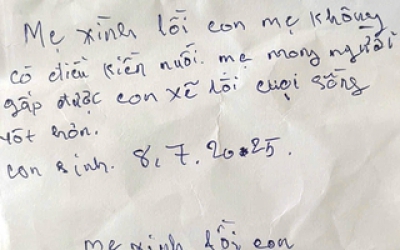 Mẹ xình lỗi con mẹ không
có điều kiến nuối. mẹ mong người
gấp được con xẽ lỗi cuoi sống
tốt hơn.
con sinh. 8, 7. 2025.
mẹ xinh lỗi con